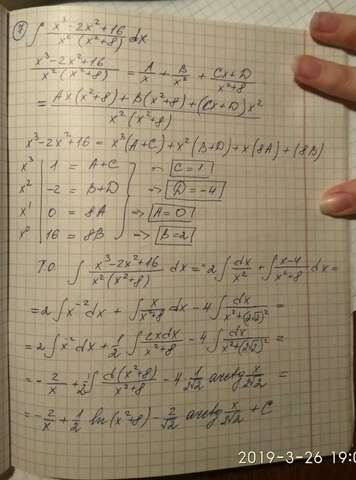 7) ∫ (x³-2x²+16)/(x²(x²+8)) dx
(x³-2x²+16)/(x²(x²+8)) = A/x + B/x² + (Cx+D)/(x²+8) =
= (Ax(x²+8)+B(x²+8)+(Cx+D)x²)/(x²(x²+8))
x³-2x²+16 = x³(A+C)+x²(B+D)+x(8A)+(8B)
x³ | 1 = A+C } => C=1
x² | -2 = B+D => D=-4
x¹ | 0 = 8A => A=0
x⁰ | 16 = 8B => B=2
Т.о. ∫ (x³-2x²+16)/(x²(x²+8)) dx = 2∫ dx/x² + ∫ (x-4)/(x²+8) dx =
= 2∫x⁻²dx + ∫ x/(x²+8) dx - 4∫ dx/(x²+(2√2)²) =
= 2∫x⁻²dx + 1/2 ∫ 2xdx/(x²+8) - 4∫ dx/(x²+(2√2)²) =
= -2/x + 1/2 ∫ d(x²+8)/(x²+8) - 4 · 1/(2√2) arctg x/(2√2) =
= -2/x + 1/2 ln(x²+8) - 2/√2 arctg x/(2√2) + C
2019-3-26 19:0